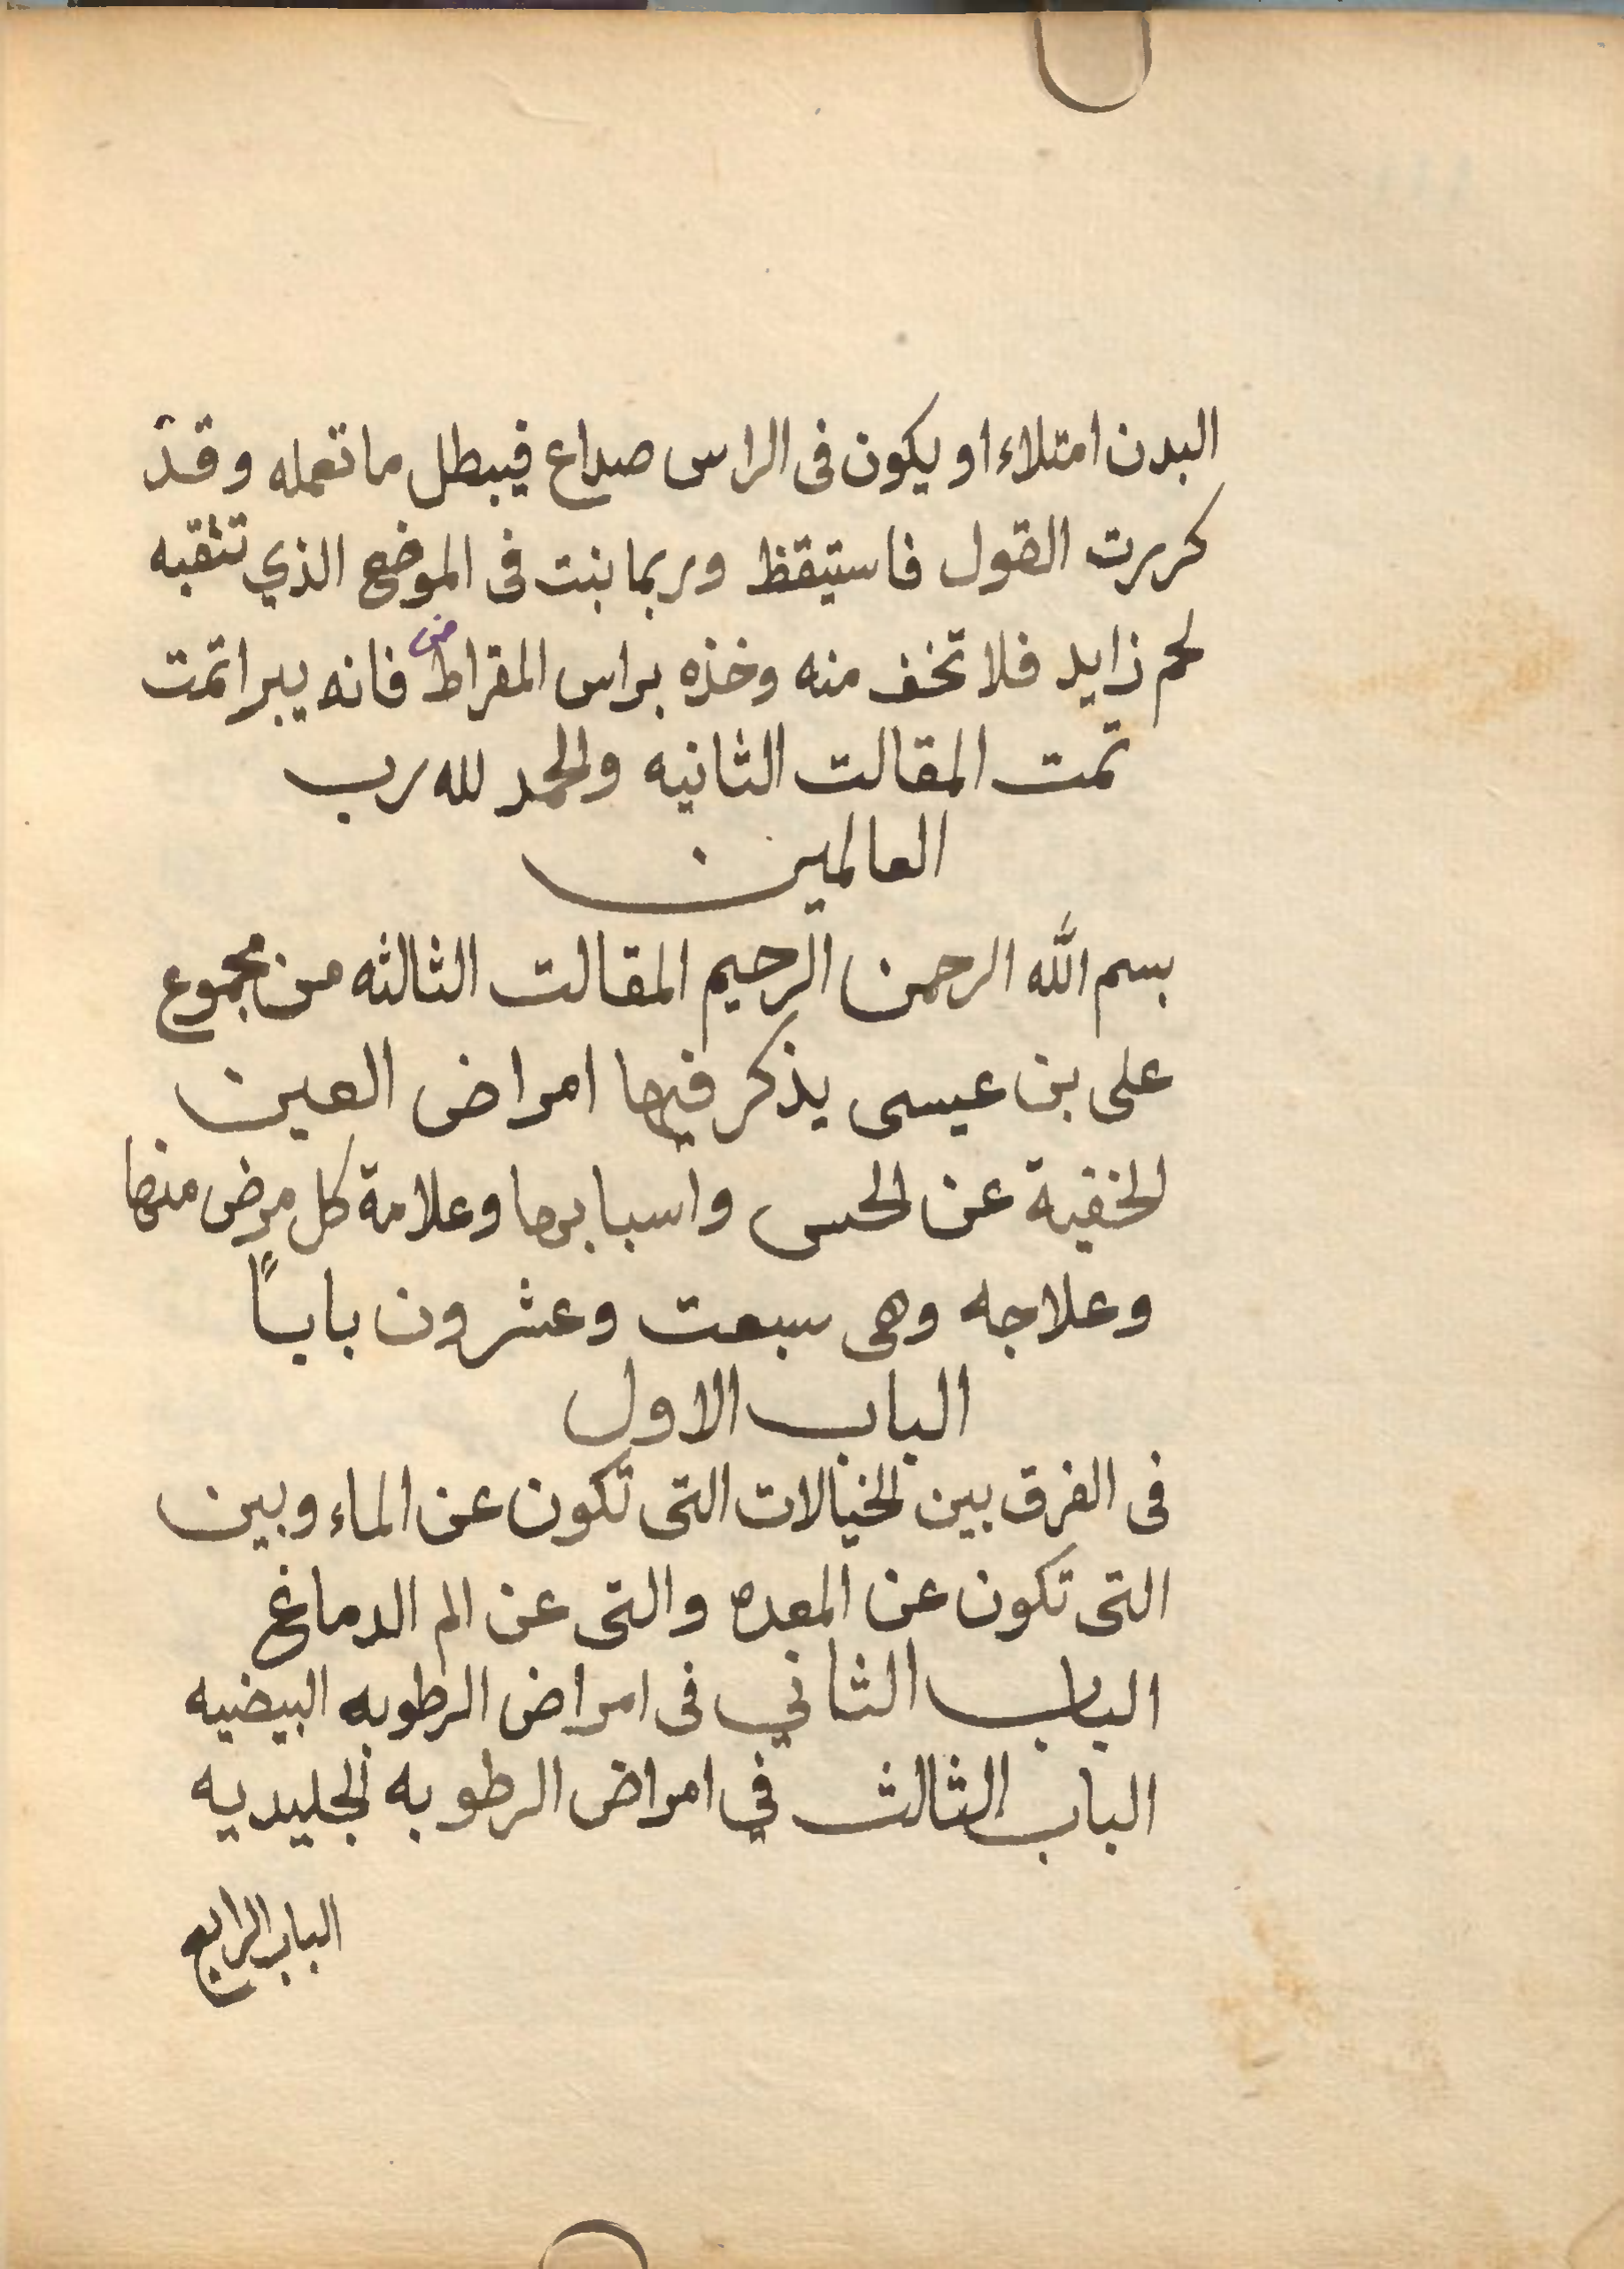 البدن امتلاء او يكون فى الراس صداع فيبطل ما تعمله وقد
كررت القول فاستيقظ وربما نبت فى الموضع الذي تثقبه
لحم زايد فلا تخف منه وخذه براس المقراط ض فانه يبرا تمت
تمت المقالت الثانيه والحمد لله رب
العالمين
بسم الله الرحمن الرحيم المقالت الثالثه من مجموع
على بن عيسى يذكر فيها امراض العين
الخفية عن الحس واسبابها وعلامة كل مرض منها
وعلاجه وهى سبعت وعشرون باباً
الباب الاول
فى الفرق بين الخيالات التى تكون عن الماء وبين
التى تكون عن المعده والتى عن الم الدماغ
الباب الثاني فى امراض الرطوبه البيضيه
الباب الثالث في امراض الرطوبه الجليديه
الباب الرابع